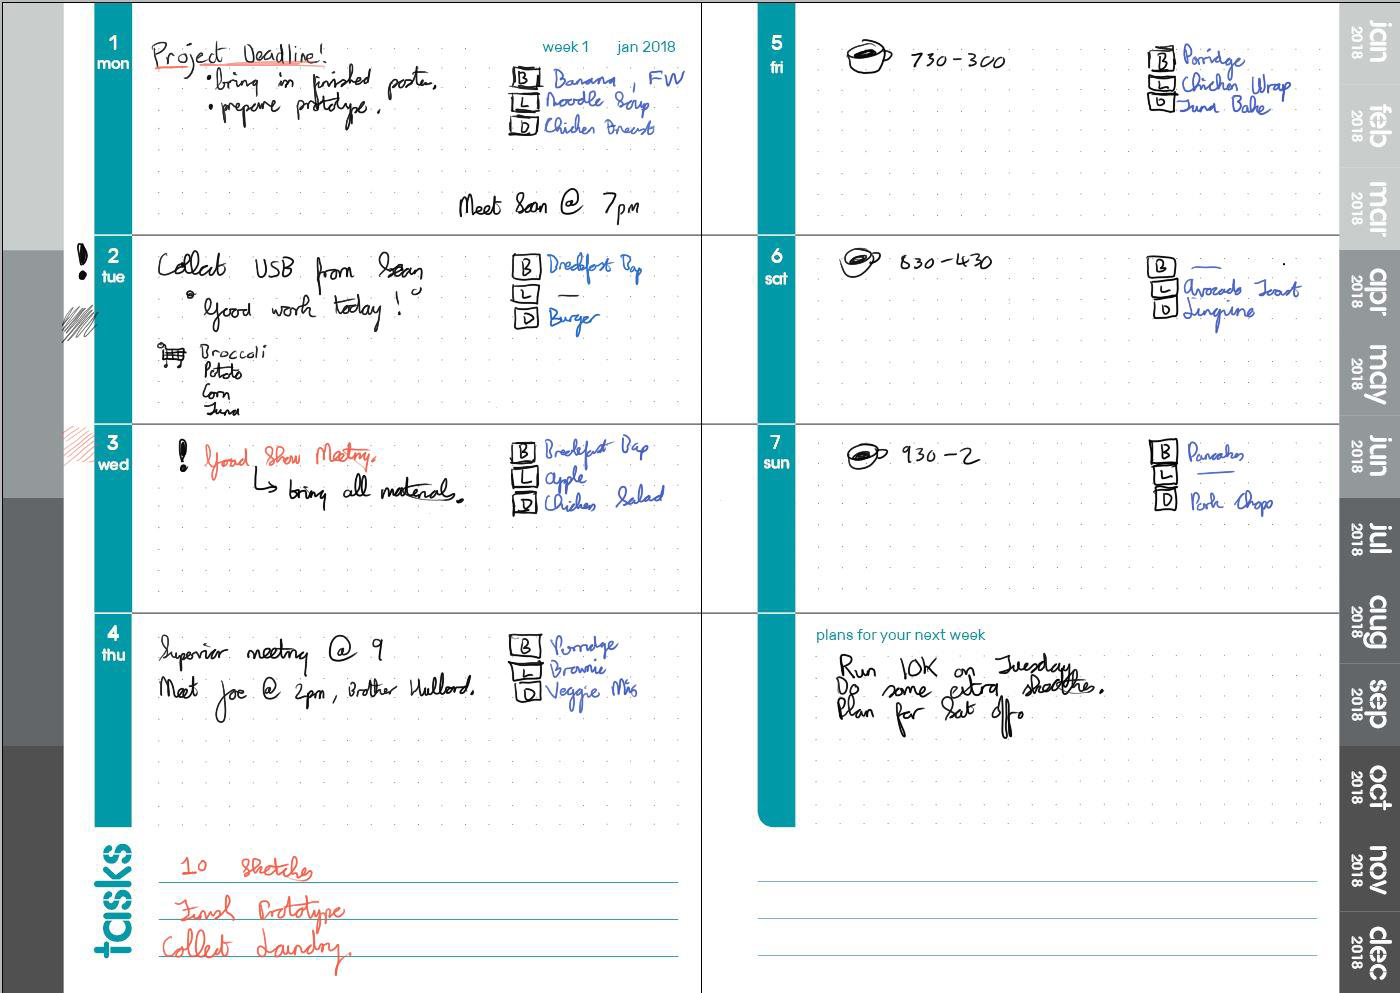 1
mon
Project Deadline!
• bring in finished poster.
• prepare prototype.
week 1 jan 2018
B Banana, FW
L Noodle Soup
D Chicken Breast
Meet Sean @ 7pm
!
2
tue
Collect USB from Sean
• Good work today!
Broccoli
Potato
Corn
Tuna
B Breakfast Bap
L —
D Burger
3
wed
! Good Show Meeting.
bring all materials.
B Breakfast Bap
L Apple
D Chicken Salad
4
thu
Superior meeting @ 9
Meet Joe @ 2pm, Brother
B Porridge
L Brownie
D Veggie Mix
tasks
10 Sketches
Finish Prototype
Collect Laundry.
5
fri
730-300
B Porridge
L Chicken Wrap
D Tuna Bake
6
sat
830-430
B —
L Avocado Toast
D Linguine
7
sun
930-2
B Pancakes
L —
D Pork Chops
plans for your next week
Run 10K on Tuesday
Do some extra sketches.
Plan for Sat off.
jan 2018
feb 2018
mar 2018
apr 2018
may 2018
jun 2018
jul 2018
aug 2018
sep 2018
oct 2018
nov 2018
dec 2018